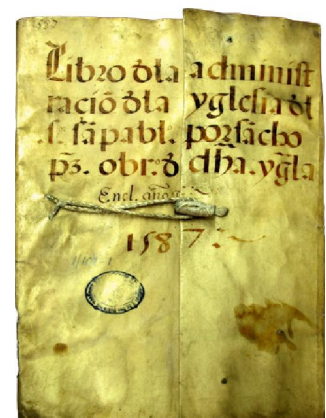 1587
Libro dla administ
raciō dla yglesia dl
.s. sā pabl. por sācho
pȝ. obr. d dha. ygla
Enel. año d
1587